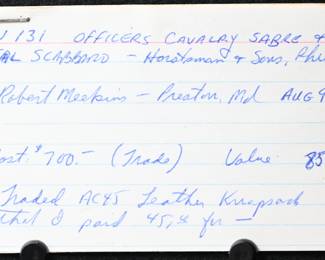 131 OFFICERS CAVALRY SABRE &
SCABBARD - Horstsman & Sons, Phi
Robert Meekins - Preston, Md AUG 9
Cost: $700.- (Trade) Value 85
Traded AC45 Leather Knapsack
that I paid 45.00 for -